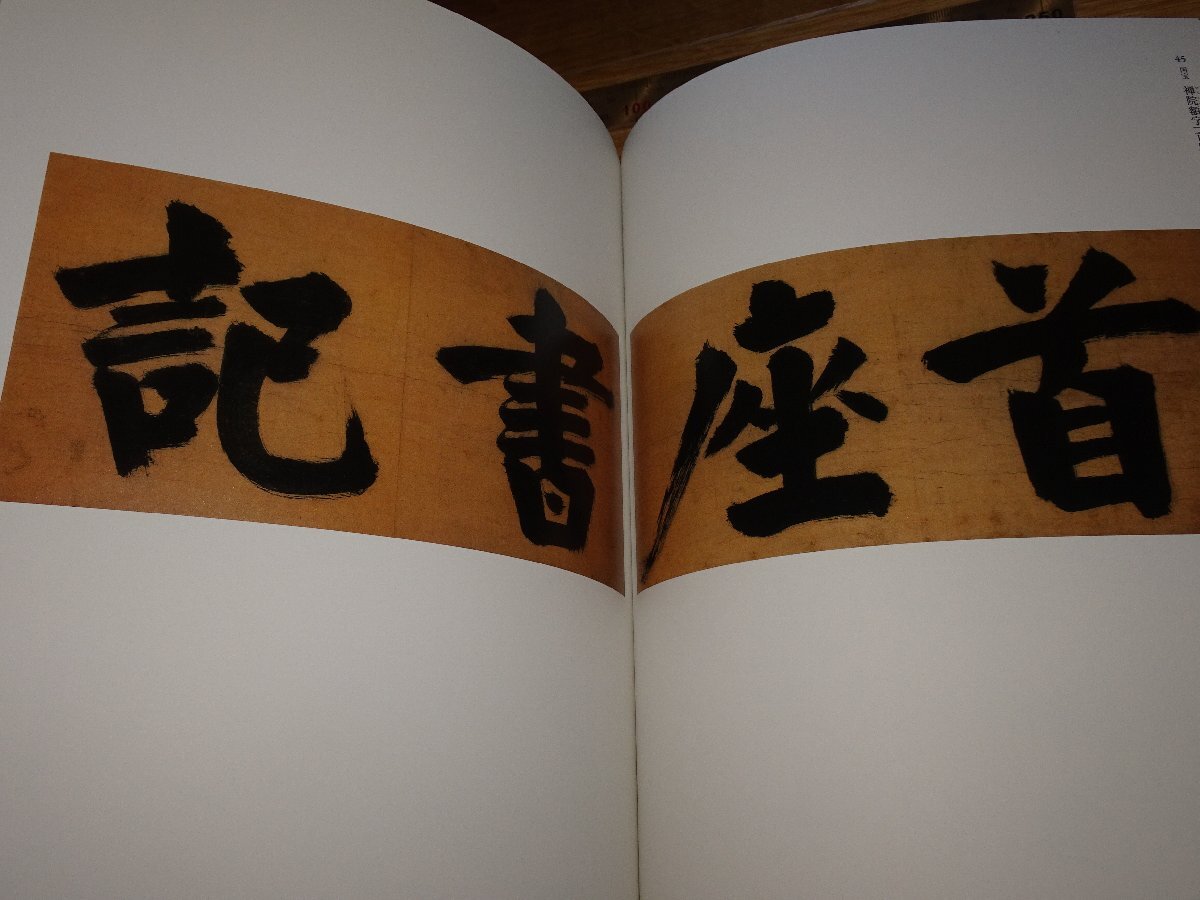 首座書記
45 国宝 禅院額字